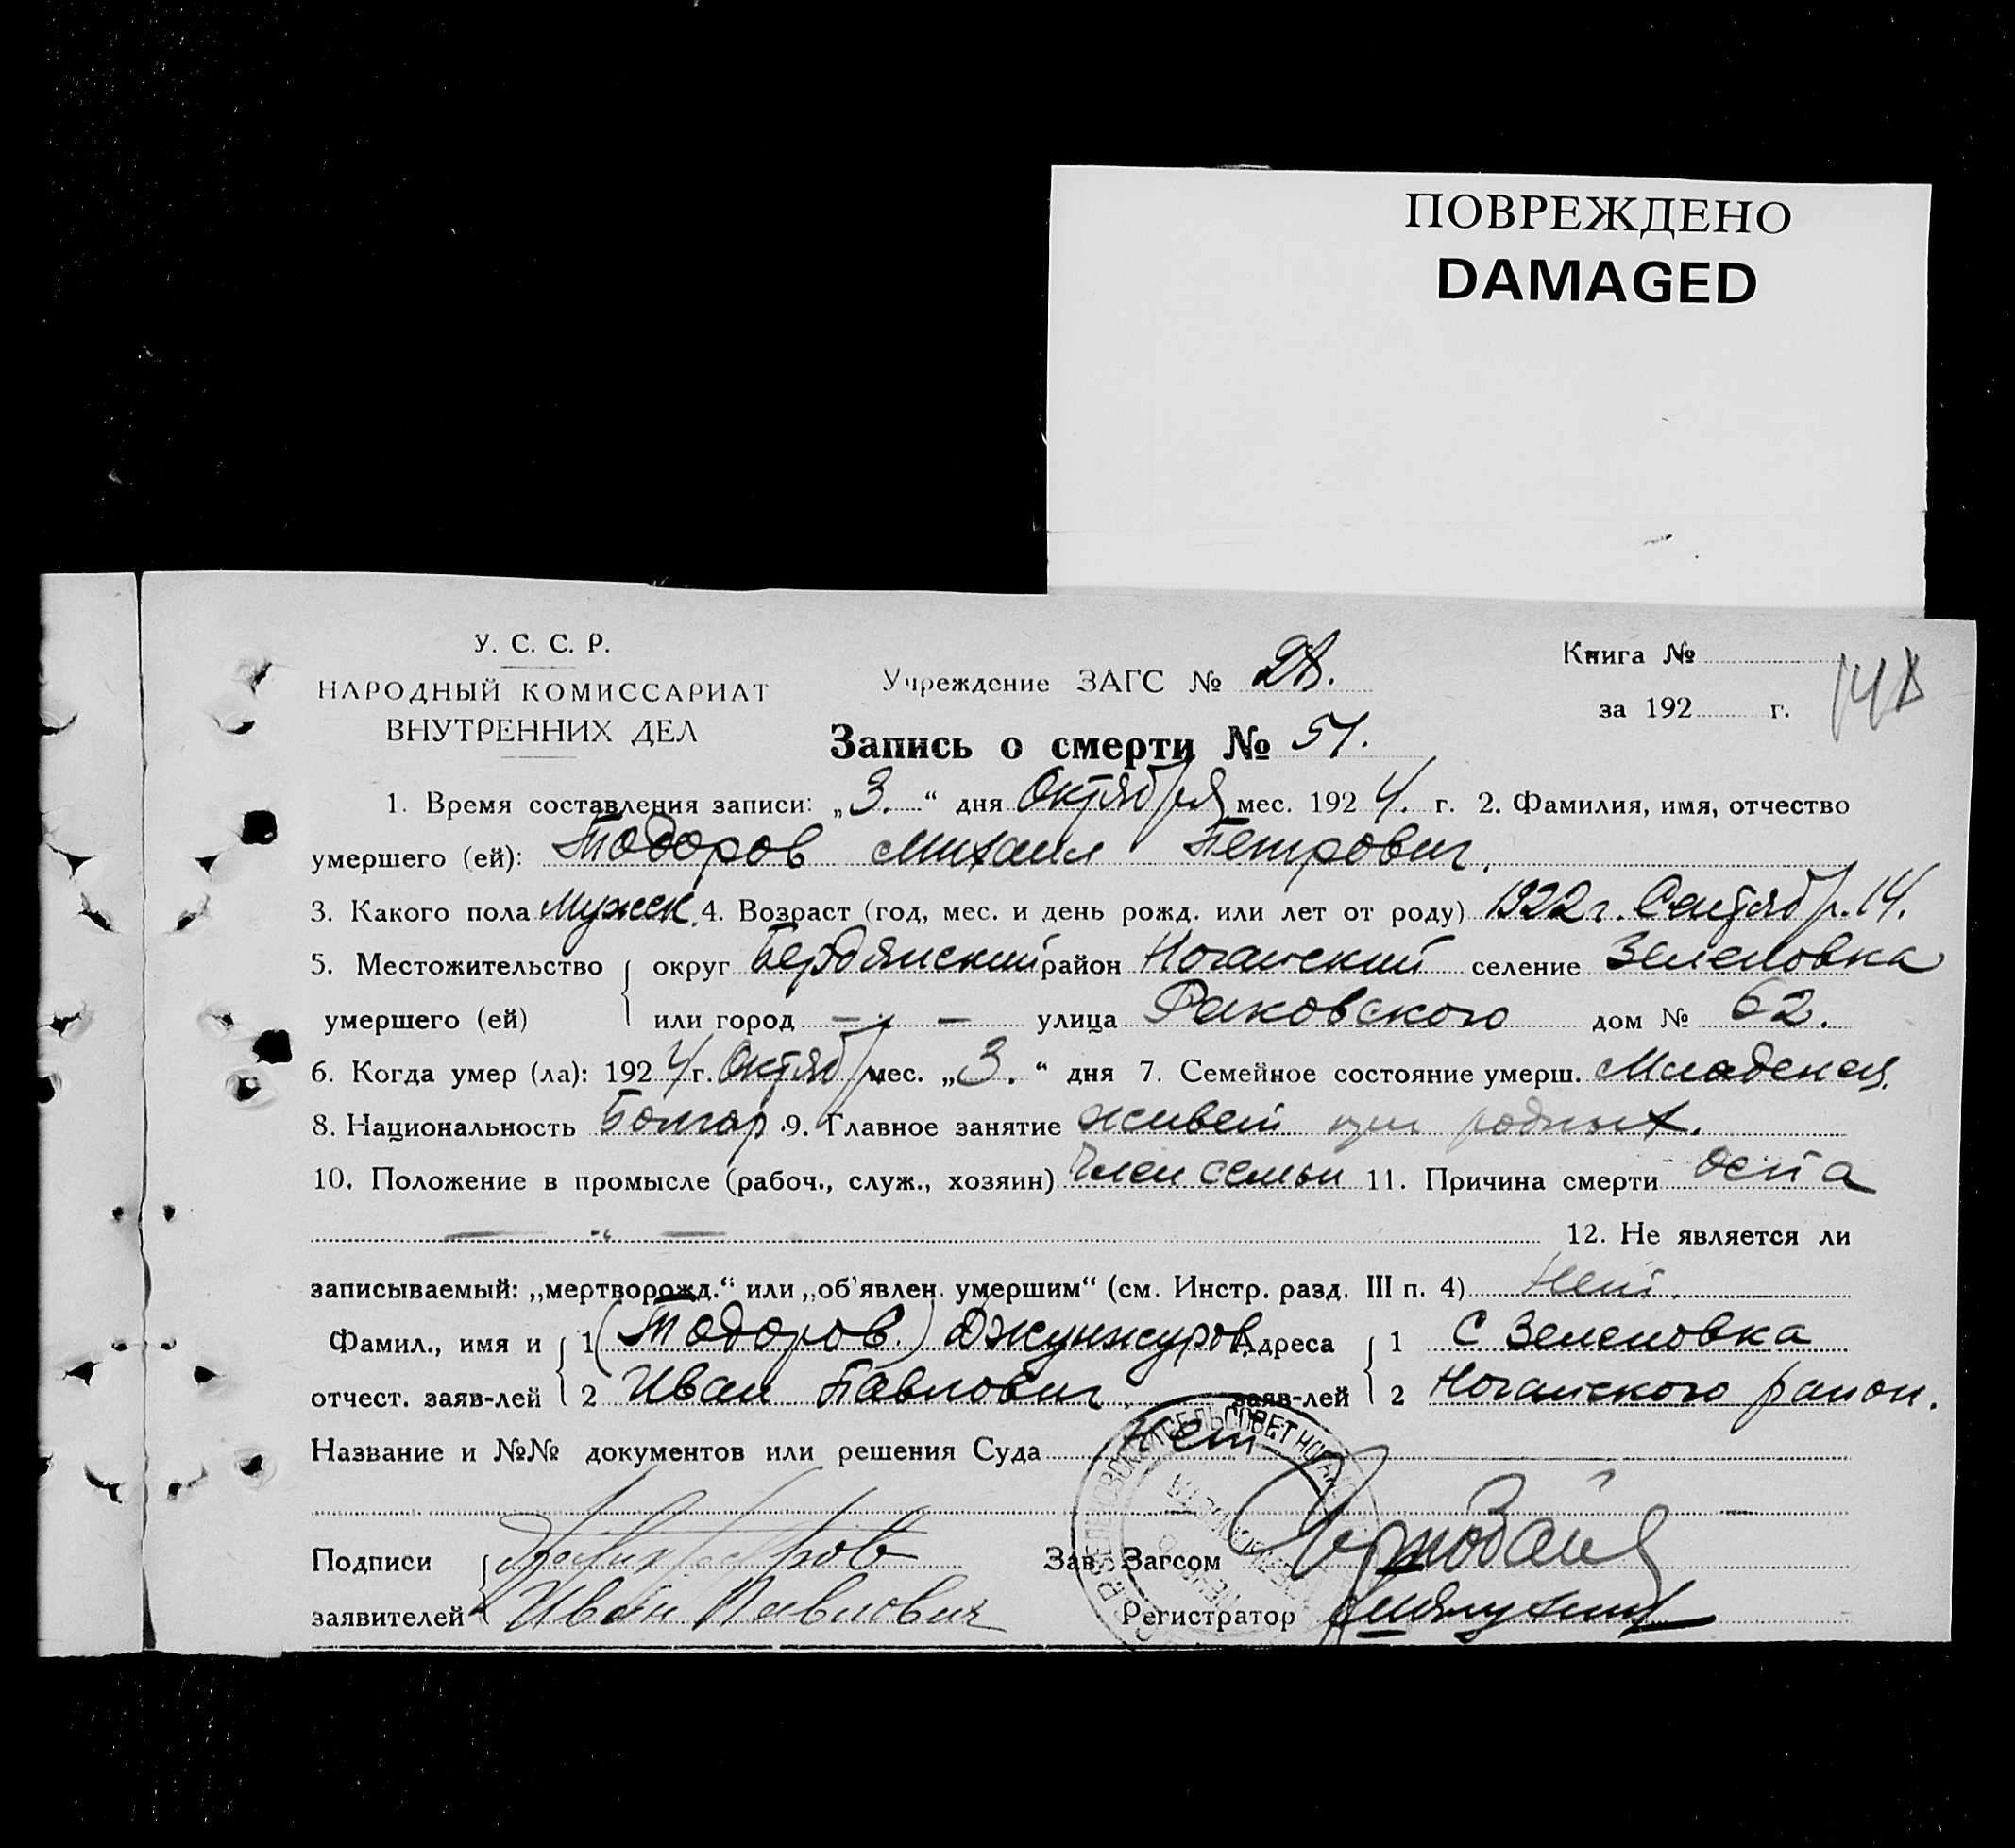 ПОВРЕЖДЕНО
DAMAGED
У. С. С. Р.
НАРОДНЫЙ КОМИССАРИАТ
ВНУТРЕННИХ ДЕЛ
Учреждение ЗАГС № 28.
Книга №
за 192 г.
Запись о смерти № 54.
1. Время составления записи: „3.“ дня Октября мес. 1924. г. 2. Фамилия, имя, отчество
умершего (ей): Тодоров Михаил Петрович.
3. Какого пола Мужск. 4. Возраст (год, мес. и день рожд. или лет от роду) 1922 г. Сентябр. 14.
5. Местожительство округ Бердянский район Ногайский селение Зеленовка
умершего (ей) или город — — улица Раковского дом № 62.
6. Когда умер (ла): 1924 г. Октябр мес. „3.“ дня 7. Семейное состояние умерш. Младенец.
8. Национальность Болгар. 9. Главное занятие живет при родных.
10. Положение в промысле (рабоч., служ., хозяин) Член семьи 11. Причина смерти оспа
— „ — 12. Не является ли
записываемый: „мертворожд.“ или „об'явлен. умершим“ (см. Инстр. разд. III п. 4) Нет.
Фамил., имя и 1 (Тодоров.) Джунжуров Адреса 1 С Зеленовка
отчест. заяв-лей 2 Иван Павлович. заяв-лей 2 Ногайского район.
Название и №№ документов или решения Суда Нет
Подписи Зав. Загсом
заявителей Иван Павлович Регистратор